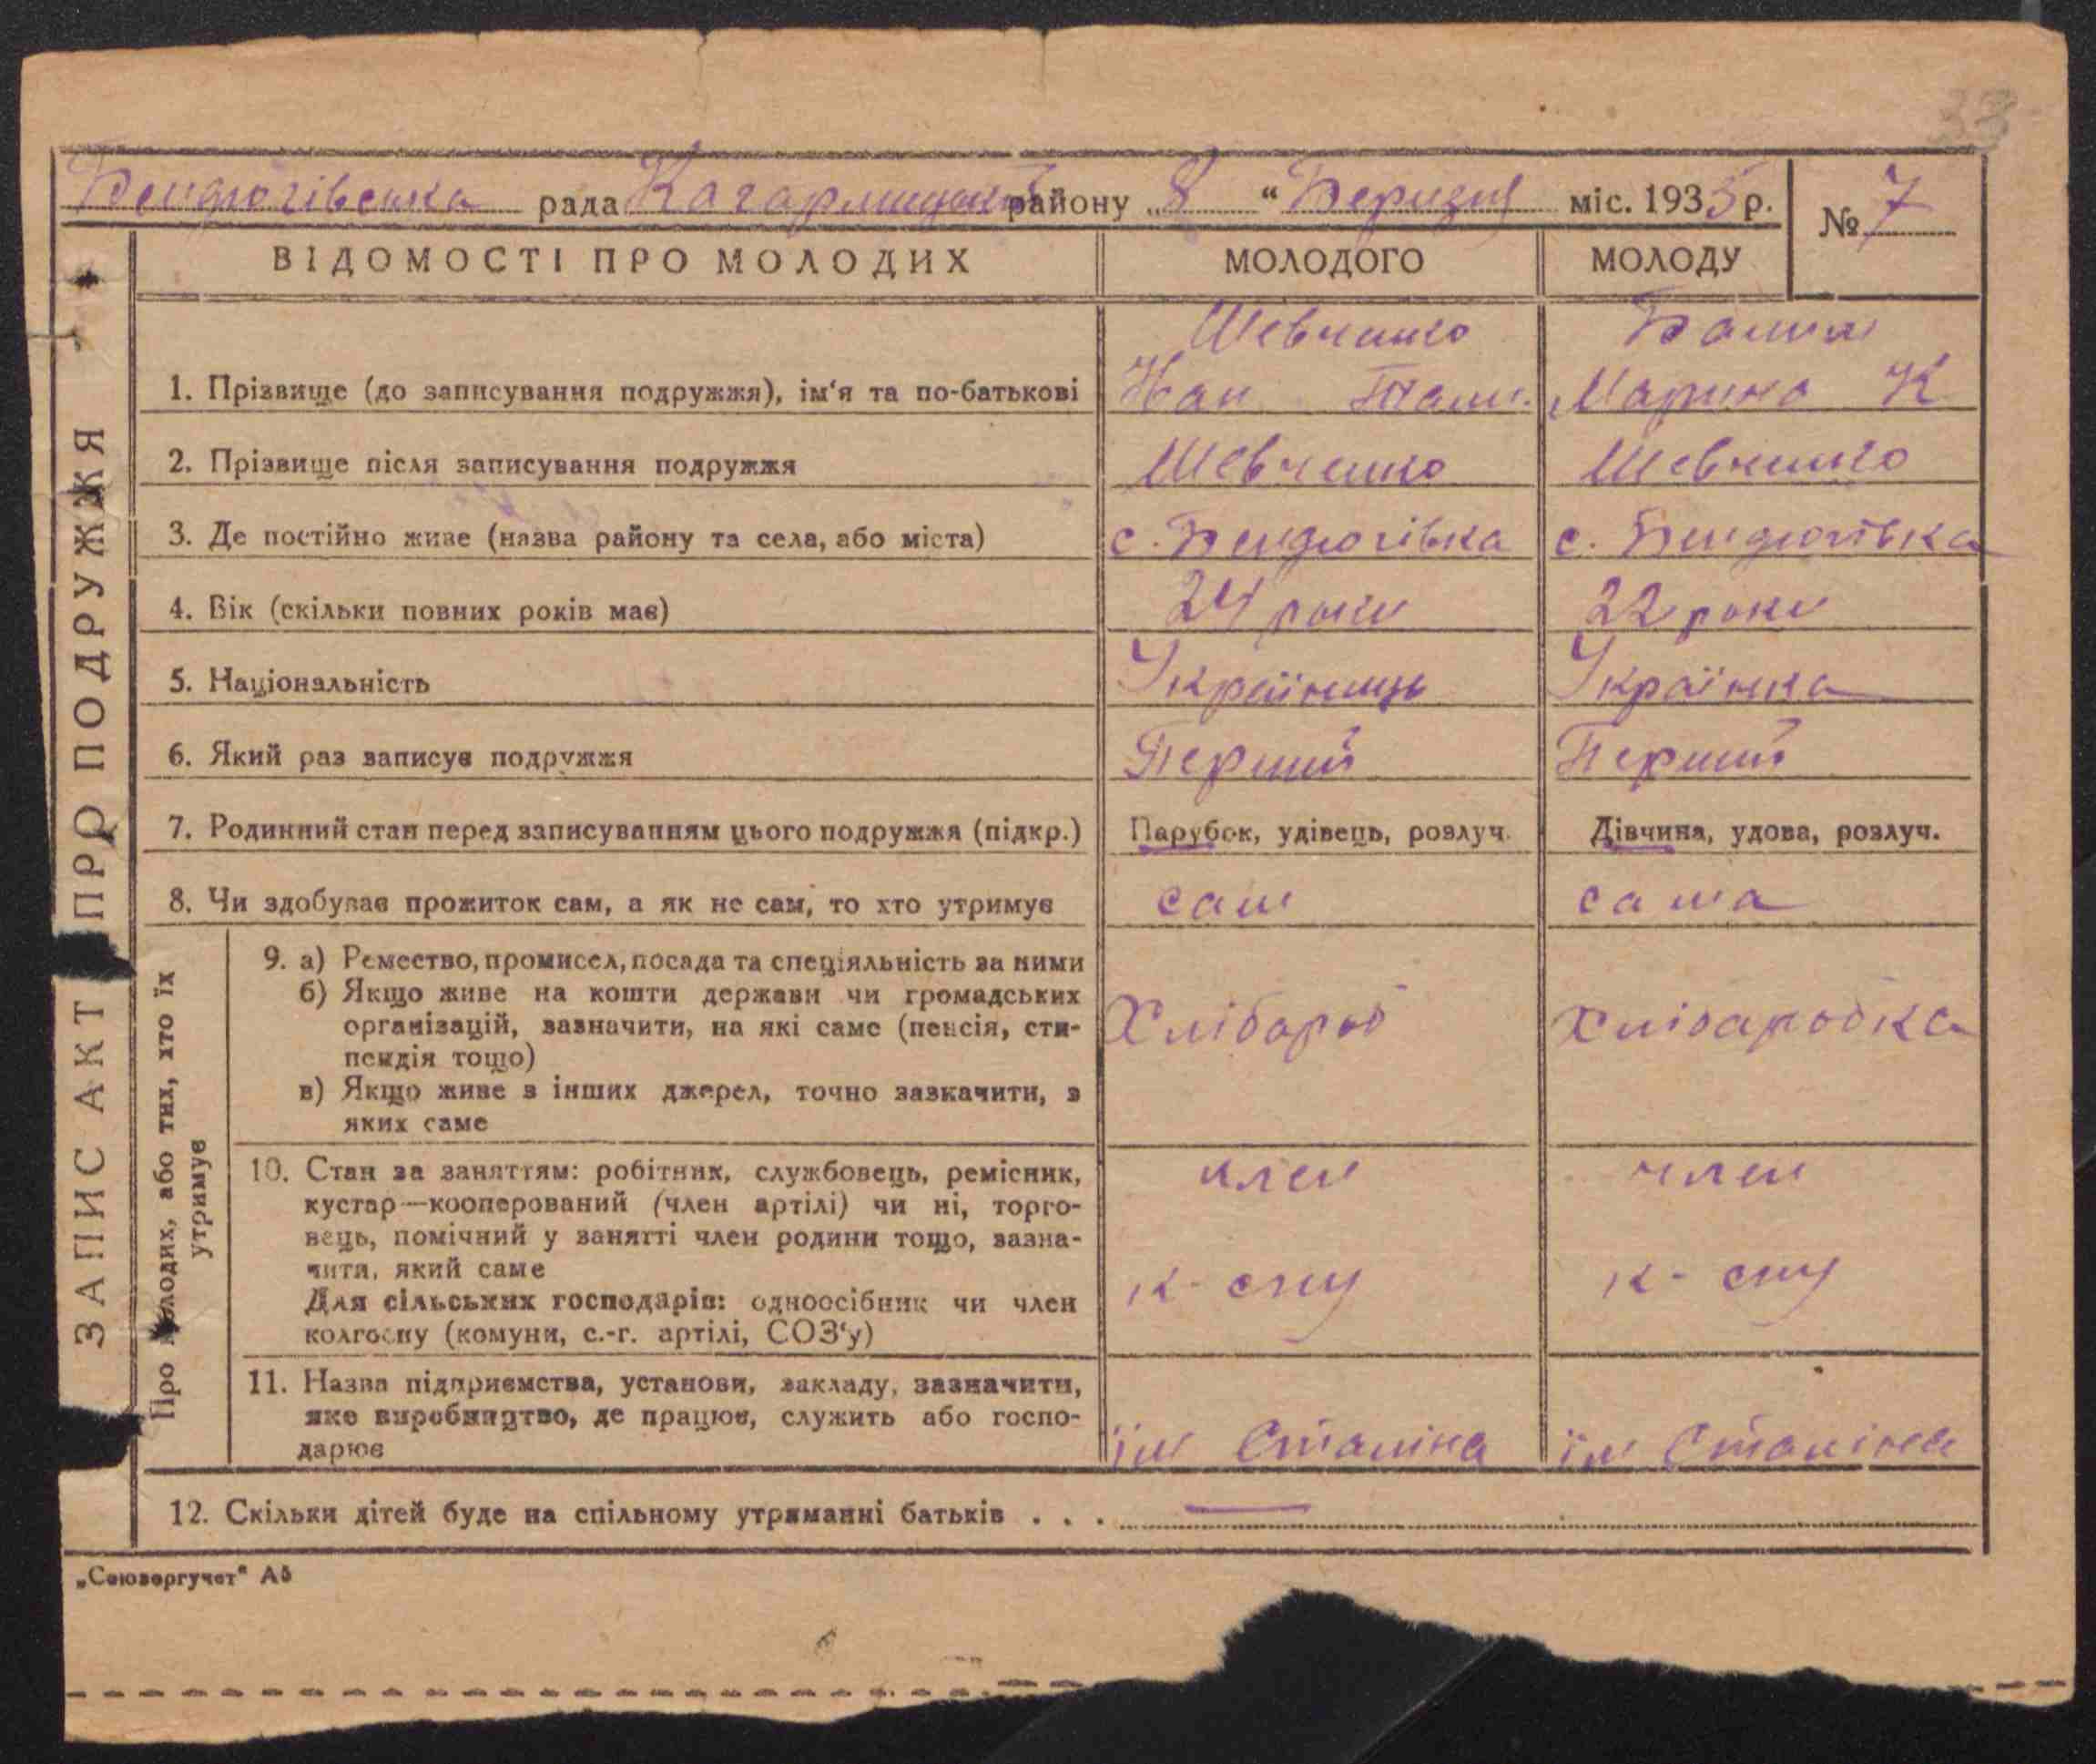 33
Бендюгівська рада Кагарлицький району „8“ Беризня міс. 1935 р. № 7
ВІДОМОСТІ ПРО МОЛОДИХ МОЛОДОГО МОЛОДУ
Шевченко
1. Прізвище (до записування подружжя), ім‘я та по-батькові Марина К
2. Прізвище після записування подружжя Шевченко Шевченко
3. Де постійно живе (назва району та села, або міста) с. Бендюгівка с. Бендюгівка
4. Вік (скільки повних років має) 24 роки 22 роки
5. Національність Українець Українка
6. Який раз записує подружжя Перший Перший
7. Родинний стан перед записуванням цього подружжя (підкр.) Парубок, удівець, розлуч. Дівчина, удова, розлуч.
8. Чи здобуває прожиток сам, а як не сам, то хто утримує сам сама
9. а) Ремество, промисел, посада та спеціяльність за ними
б) Якщо живе на кошти держави чи громадських
організацій, зазначити, на які саме (пенсія, сти-
пендія тощо)
Хлібороб Хліборобка
в) Якщо живе з інших джерел, точно зазначити, з
яких саме
10. Стан за заняттям: робітник, службовець, ремісник, член член
кустар—кооперований (член артілі) чи ні, торго-
вець, помічний у занятті член родини тощо, зазна-
чити, який саме
к-спу к-спу
Для сільських господарів: одноосібник чи член
колгоспу (комуни, с.-г. артілі, СОЗ‘у)
11. Назва підприємства, установи, закладу, зазначити,
яке виробництво, де працює, служить або госпо-
дарює ім Сталіна ім Сталіна
12. Скільки дітей буде на спільному утриманні батьків . . . —
ЗАПИС АКТ ПРО ПОДРУЖЖЯ
Про молодих, або тих, хто їх
утримує
„Союзоргучет“ А5